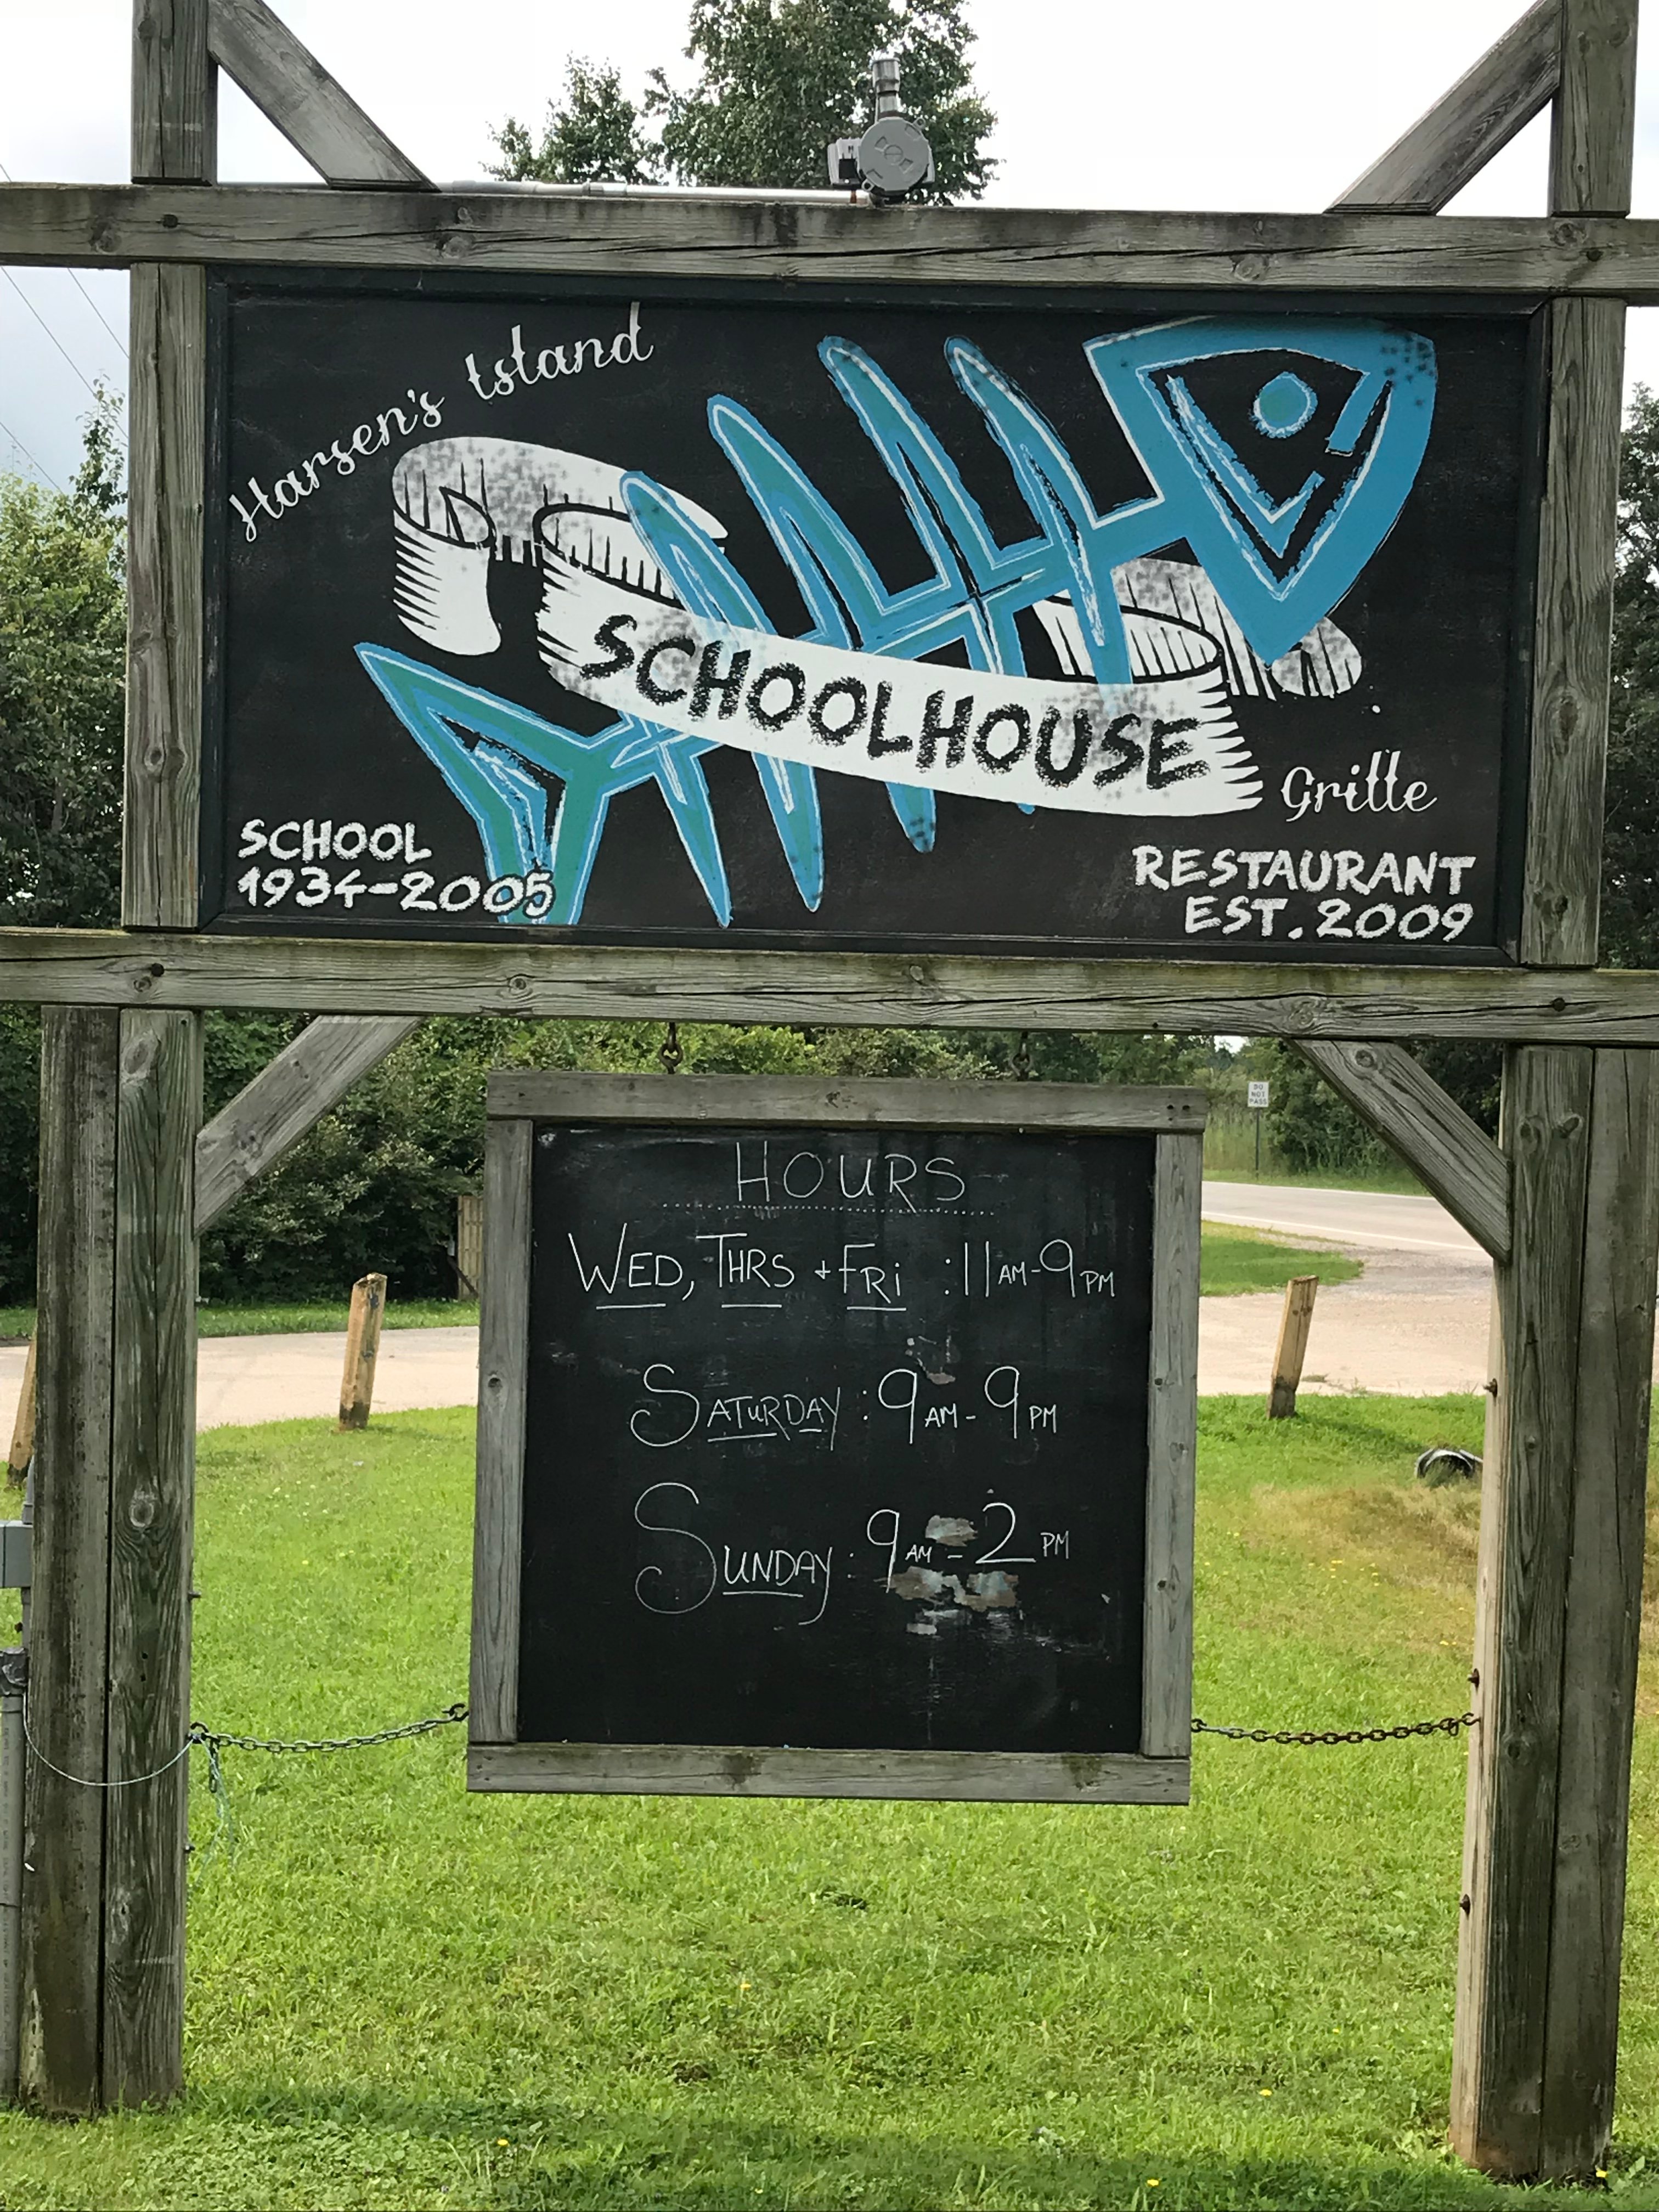 Harsen's Island
SCHOOLHOUSE
Grille
SCHOOL
1934-2005
RESTAURANT
EST. 2009
DO
NOT
PASS
HOURS
WED, THRS + FRi : 11AM-9PM
SATURDAY : 9AM-9PM
SUNDAY : 9AM-2PM